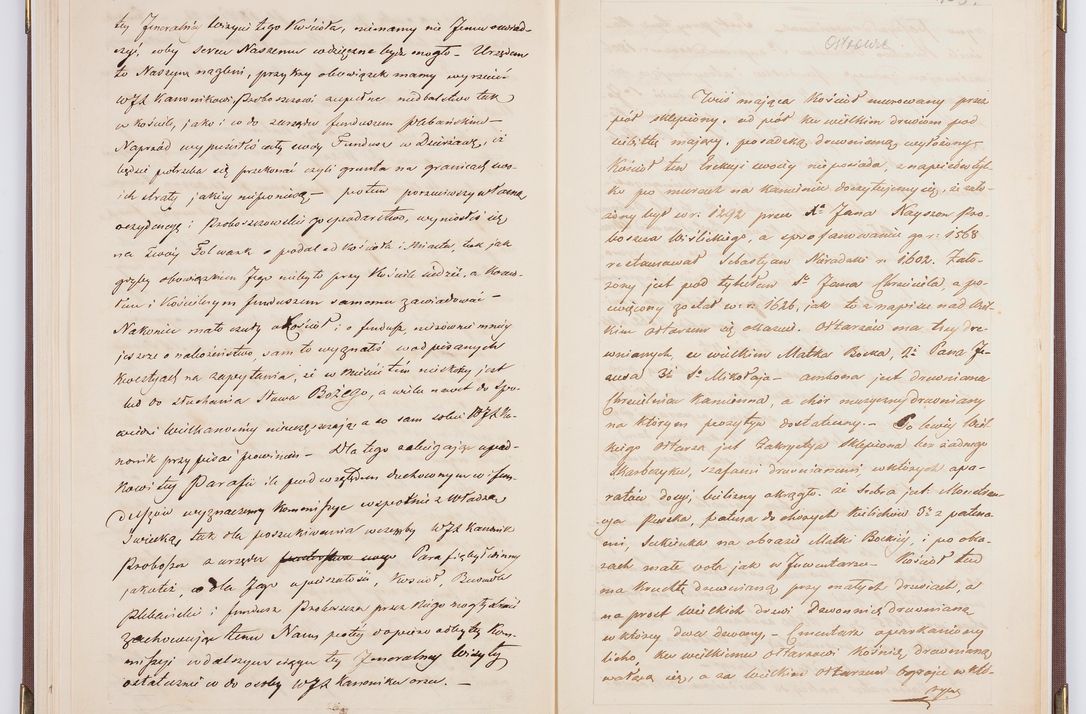 tey Jeneralne wizyi tego Kościoła, niemamy nic Jemu oświad-
czyć, coby sercu Naszemu wdzięczne bydz mogło. Urzędem
to Naszym nagleni, przykry obowiązek mamy wyrzucić
WJX Kanonikowi Proboszczowi zupełne niedbalstwo tak
w kościele, jako i co do zarządu funduszem plebańskim –
Naprzód wypuścił cały swóy Fundusz w Dzierżawę, iż
będzie potrzeba się przekonać czyli grunta na granicach swo-
ich straty jakiey nieponiosą – potem porzuciwszy własną
rezydencyę i Proboszczowskie gospodarstwo, wyniosł się
na swóy Folwark opodal od kościoła i Miasta, tak jak
gdyby obowiązkiem Jego niebyło przy Kościele siedzić, a Kościo-
łem i Kościelnym funduszem samemu zawiadować –
Nakoniec mało czuły o Kościół i o fundusz niezównie mniey
jeszcze o nabożeństwo, sam to wyznałeś w odpisanych
kwestyach na zapytania, że w Mieście tém nieskory jest
lud do słuchania Słowa Bożego, a wielu nawet do Spo-
wiedzi Wielkanocnéy nieuczęszczają a co sam sobie WJX Ka-
nonik przypisać powinien – Dla tego zalecając upad-
kowi tey Parafii ile pod względem duchownym i fun-
duszów wyznaczemy Kommissyę wspólnie z Władzą
Swiecką, tak dla poszukiwania wczegoby WJX Kanonik
Proboszcz a urzędu Parafię był winny
jakoteż, co dla Jego opieszałości, Kościoł, Budowla
Plebańskie i fundusz Proboszcza przez Niego mogły stracić
zachowując temu Nam potéy dopiero odbytey Kom-
missyi w dalszym ciągu tey Jeneralney Wizyty
ostatecznie co do osoby WJX Kanonika orzec. –
Ostrowce
Wieś mająca Kościół murowany przez
pół sklepiony. od pół ku wielkim drzwiom pod
sufitkę mający. posadzką drewnianą wyłożony –
Kościół ten Erekcyi swoiéy nie posiada, z napisów tyl-
ko po murach na kamieniu doczytujemy się, że zało-
żony był w r. 1292 przez Xa Jana Kayszon Pro-
boszcza Wislickiego, a sprofanowanie go r. 1568
restaurował Sebastyan Niradzki r. 1602. Zało-
żony jest pod tytułem Sgo Jana Chrzciciela, a po-
święcony został w r. 1626, jak to z napisu nad Wiel-
kim ołtarzem się okazuie. Ołtarzów ma trzy dre-
wnianych, w wielkim Matka Boska, 2i Pana Je-
zusa 3i Sgo Mikołaja – ambona jest drewniana
Chrzcielnica kamienna, a chór muzyczny drewniany
na którym pozytyw dostateczny. – Po lewéy Wiel-
kiego Ołtarza jest Zakrystya sklepiona bez żadnego
Skarbczyku, szafami drewnianemi w których apa-
ratów dosyć, bielizny okrągło. ze srebra jest Monstran-
cya Puszka, patena do chorych kielichów 3i z patena-
mi, Sukienka na obrazie Matki Boskiey, i po obra-
zach małe vota jak w Inwentarzu. – Kościół ten
ma kruchtę drewnianą przy małych drzwiach, a
na prost wielkich drzwi Dzwonnicę drewnianą
w którey dwa dzwony. – Cmentarz oparkaniony
licho, ku wielkiemu Ołtarzowi kośnicą drewnianą
walącą się, a za Wielkim Ołtarzem Ogrojce w któ-
rym